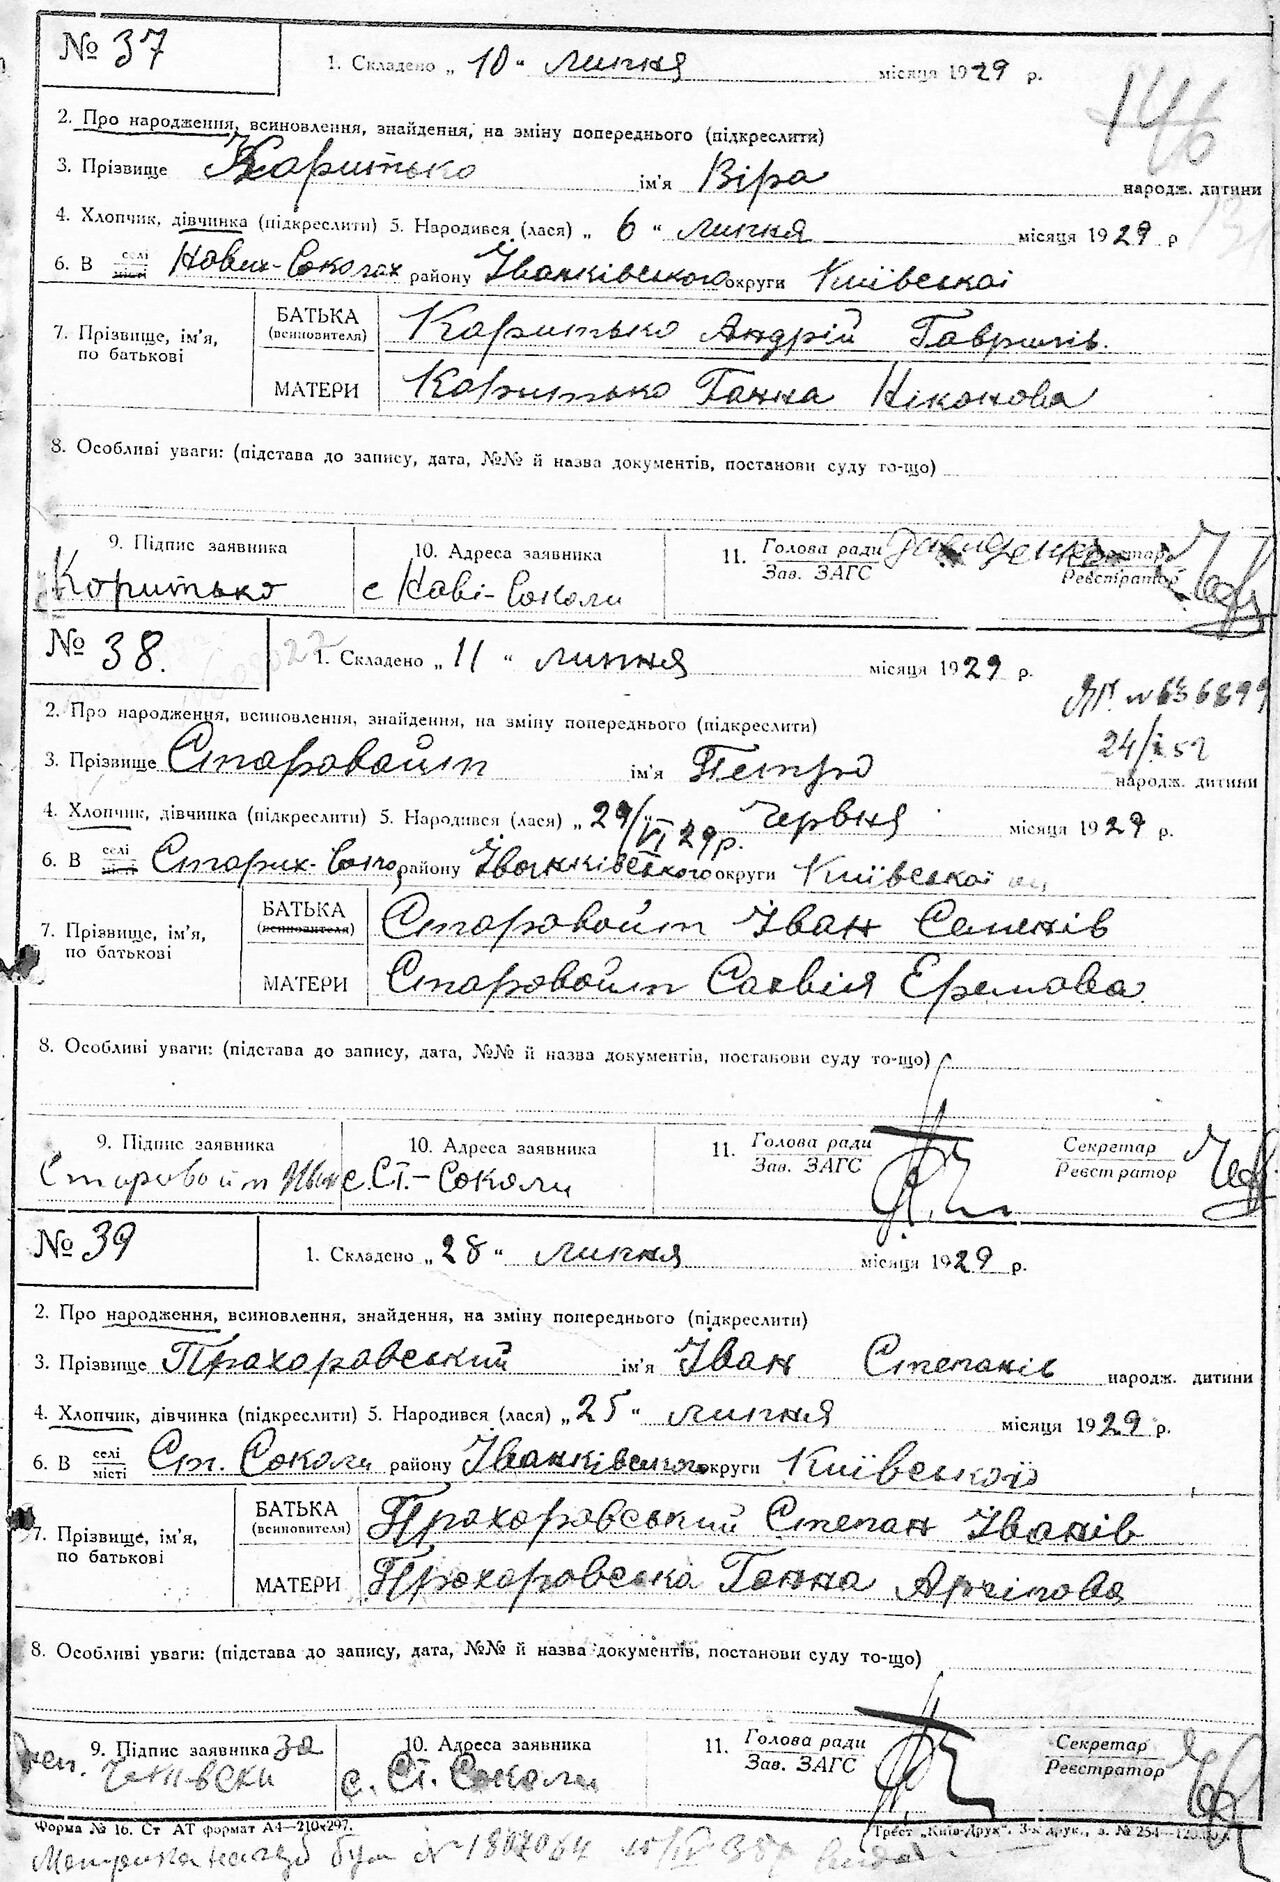 № 37
1. Складено „ 10 " липня місяця 1929 р.
146
2. Про народження, всиновлення, знайдення, на зміну попереднього (підкреслити)
3. Прізвище Коритько ім'я Віра народж. дитини
4. Хлопчик, дівчинка (підкреслити) 5. Народився (лася) „ 6 " липня місяця 1929 р
6. В селі місті Нових-Соколах району Іванківського округи Київської
7. Прізвище, ім'я, по батькові
БАТЬКА (всиновителя) Коритько Андрій Гаврилів.
МАТЕРИ Коритько Ганна Ніконова
8. Особливі уваги: (підстава до запису, дата, №№ й назва документів, постанови суду то-що)
9. Підпис заявника 10. Адреса заявника 11. Голова ради Зав. ЗАГС Секретар Реєстратор
Коритько с Нові-Соколи
№ 38.
1. Складено „ 11 " липня місяця 1929 р.
2. Про народження, всиновлення, знайдення, на зміну попереднього (підкреслити)
24/I 52
3. Прізвище Старовойт ім'я Петро народж. дитини
4. Хлопчик, дівчинка (підкреслити) 5. Народився (лася) „ 29/VI 29р. червня місяця 1929 р.
6. В селі місті Старих-Соко району Іванківського округи Київської
7. Прізвище, ім'я, по батькові
БАТЬКА (всиновителя) Старовойт Іван Семенів
МАТЕРИ Старовойт Єремова
8. Особливі уваги: (підстава до запису, дата, №№ й назва документів, постанови суду то-що)
9. Підпис заявника 10. Адреса заявника 11. Голова ради Зав. ЗАГС Секретар Реєстратор
Старовойт с. Ст.-Соколи
№ 39
1. Складено „ 28 " липня місяця 1929 р.
2. Про народження, всиновлення, знайдення, на зміну попереднього (підкреслити)
3. Прізвище Прохоровський ім'я Іван Степанів народж. дитини
4. Хлопчик, дівчинка (підкреслити) 5. Народився (лася) „ 25 " липня місяця 1929 р.
6. В селі місті Ст. Соколи району Іванківського округи Київської
7. Прізвище, ім'я, по батькові
БАТЬКА (всиновителя) Прохоровський Степан Іванів
МАТЕРИ Прохоровська Ганна Архіпова
8. Особливі уваги: (підстава до запису, дата, №№ й назва документів, постанови суду то-що)
9. Підпис заявника за 10. Адреса заявника 11. Голова ради Зав. ЗАГС Секретар Реєстратор
с. Ст. Соколи
Форма № 16. Ст АТ формат А4—210×297. Трест „Київ-Друк". 3-я друк., з. № 254—
№ 1807064